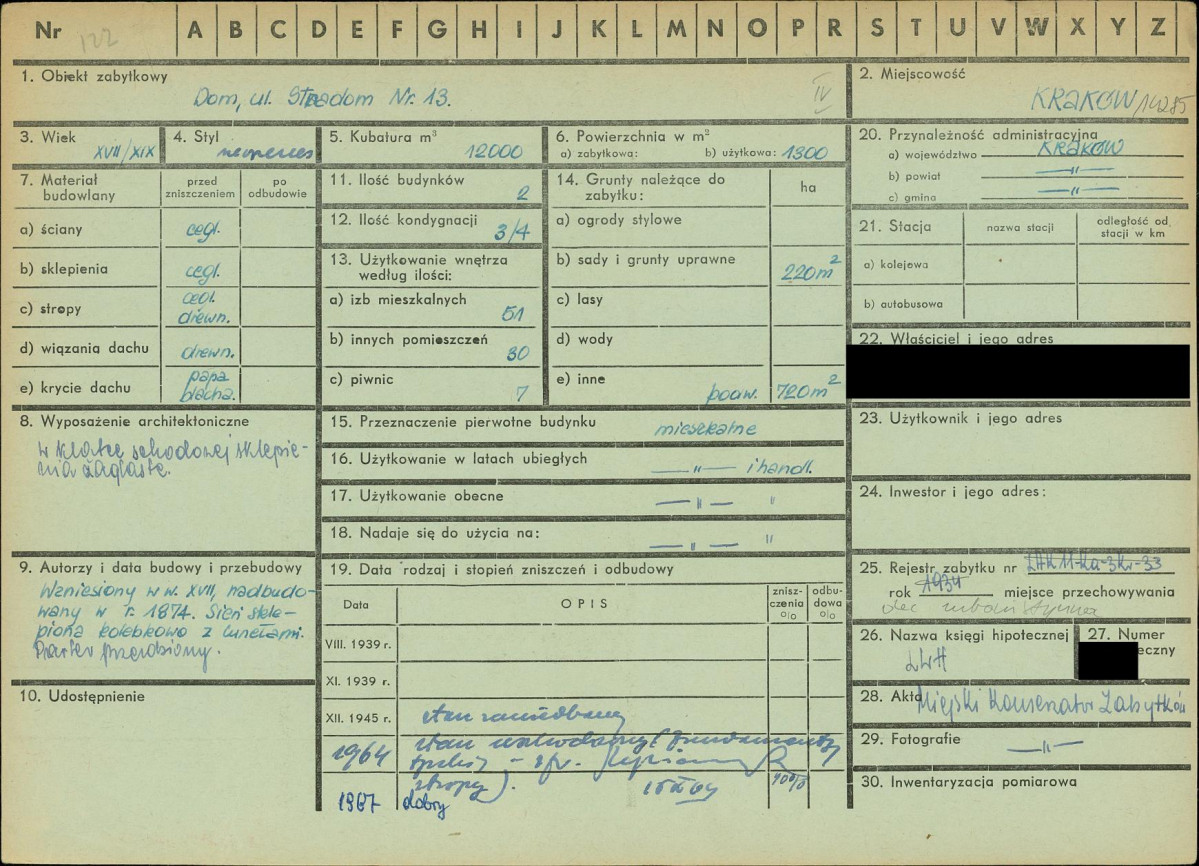 Nr 122 A B C D E F G H I J K L M N O P R S T U V W X Y Z
1. Obiekt zabytkowy
Dom, ul. Stradom Nr. 13.
IV
2. Miejscowość
KRAKÓW/14285
3. Wiek
XVII/XIX
4. Styl
neorenes
5. Kubatura m³
12000
6. Powierzchnia w m²
a) zabytkowa: b) użytkowa: 1300
20. Przynależność administracyjna
a) województwo KRAKÓW
b) powiat —"—
c) gmina —"—
7. Materiał budowlany
przed zniszczeniem
po odbudowie
a) ściany cegl.
b) sklepienia cegl.
c) stropy cegl. drewn.
d) wiązania dachu drewn.
e) krycie dachu papa blacha.
11. Ilość budynków
2
12. Ilość kondygnacji
3/4
13. Użytkowanie wnętrza
według ilości:
a) izb mieszkalnych
51
b) innych pomieszczeń
30
c) piwnic
7
14. Grunty należące do
zabytku:
ha
a) ogrody stylowe
b) sady i grunty uprawne
220m²
c) lasy
d) wody
e) inne
podw. 720m²
21. Stacja
nazwa stacji
odległość od stacji w km
a) kolejowa
b) autobusowa
22. Właściciel i jego adres
8. Wyposażenie architektoniczne
w klatce schodowej sklepie-
nia żaglaste.
15. Przeznaczenie pierwotne budynku
mieszkalne
16. Użytkowanie w latach ubiegłych
—"— i handl.
17. Użytkowanie obecne
—"— "
18. Nadaje się do użycia na:
—"— "
23. Użytkownik i jego adres
24. Inwestor i jego adres:
9. Autorzy i data budowy i przebudowy
Wzniesiony w w. XVII, nadbudo-
wany w r. 1874. Sień skle-
piona kolebkowo z lunetami.
Parter przerobiony.
10. Udostępnienie
19. Data rodzaj i stopień zniszczeń i odbudowy
Data
OPIS
znisz-
czenia
o/o
odbu-
dowa
o/o
VIII. 1939 r.
XI. 1939 r.
XII. 1945 r. stan zaniedbany
1964 stan uszkodzony (fundamenty
stropy).
40%
1967 dobry
25. Rejestr zabytku nr
rok 1934 miejsce przechowywania
26. Nazwa księgi hipotecznej
LWH
27. Numer
eczny
28. Akta Miejski Konserwator Zabytków
29. Fotografie —"—
30. Inwentaryzacja pomiarowa